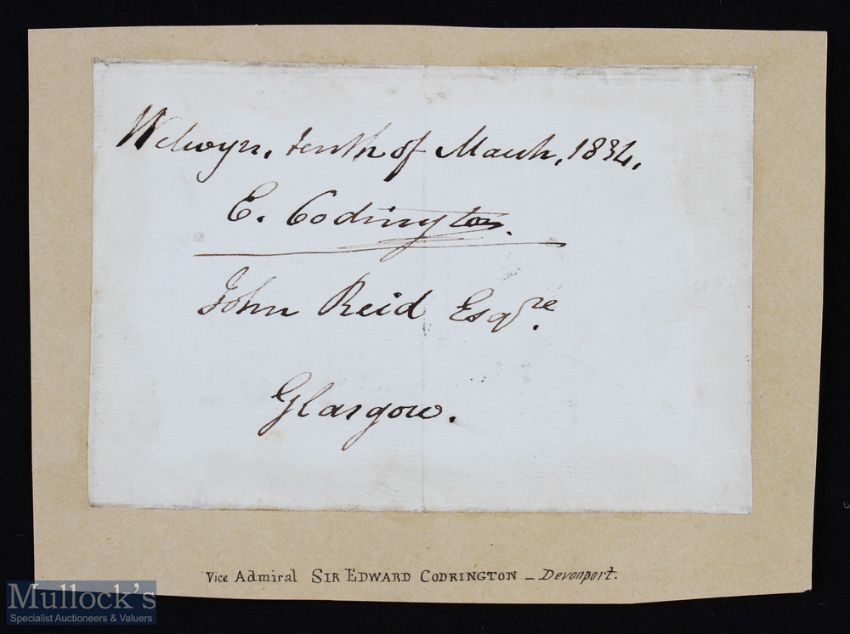 Welwyn, tenth of March, 1834,
E. Codrington.
John Reid Esqre.
Glasgow.
Vice Admiral SIR EDWARD CODRINGTON – Devonport.
Mullock's
Specialist Auctioneers & Valuers